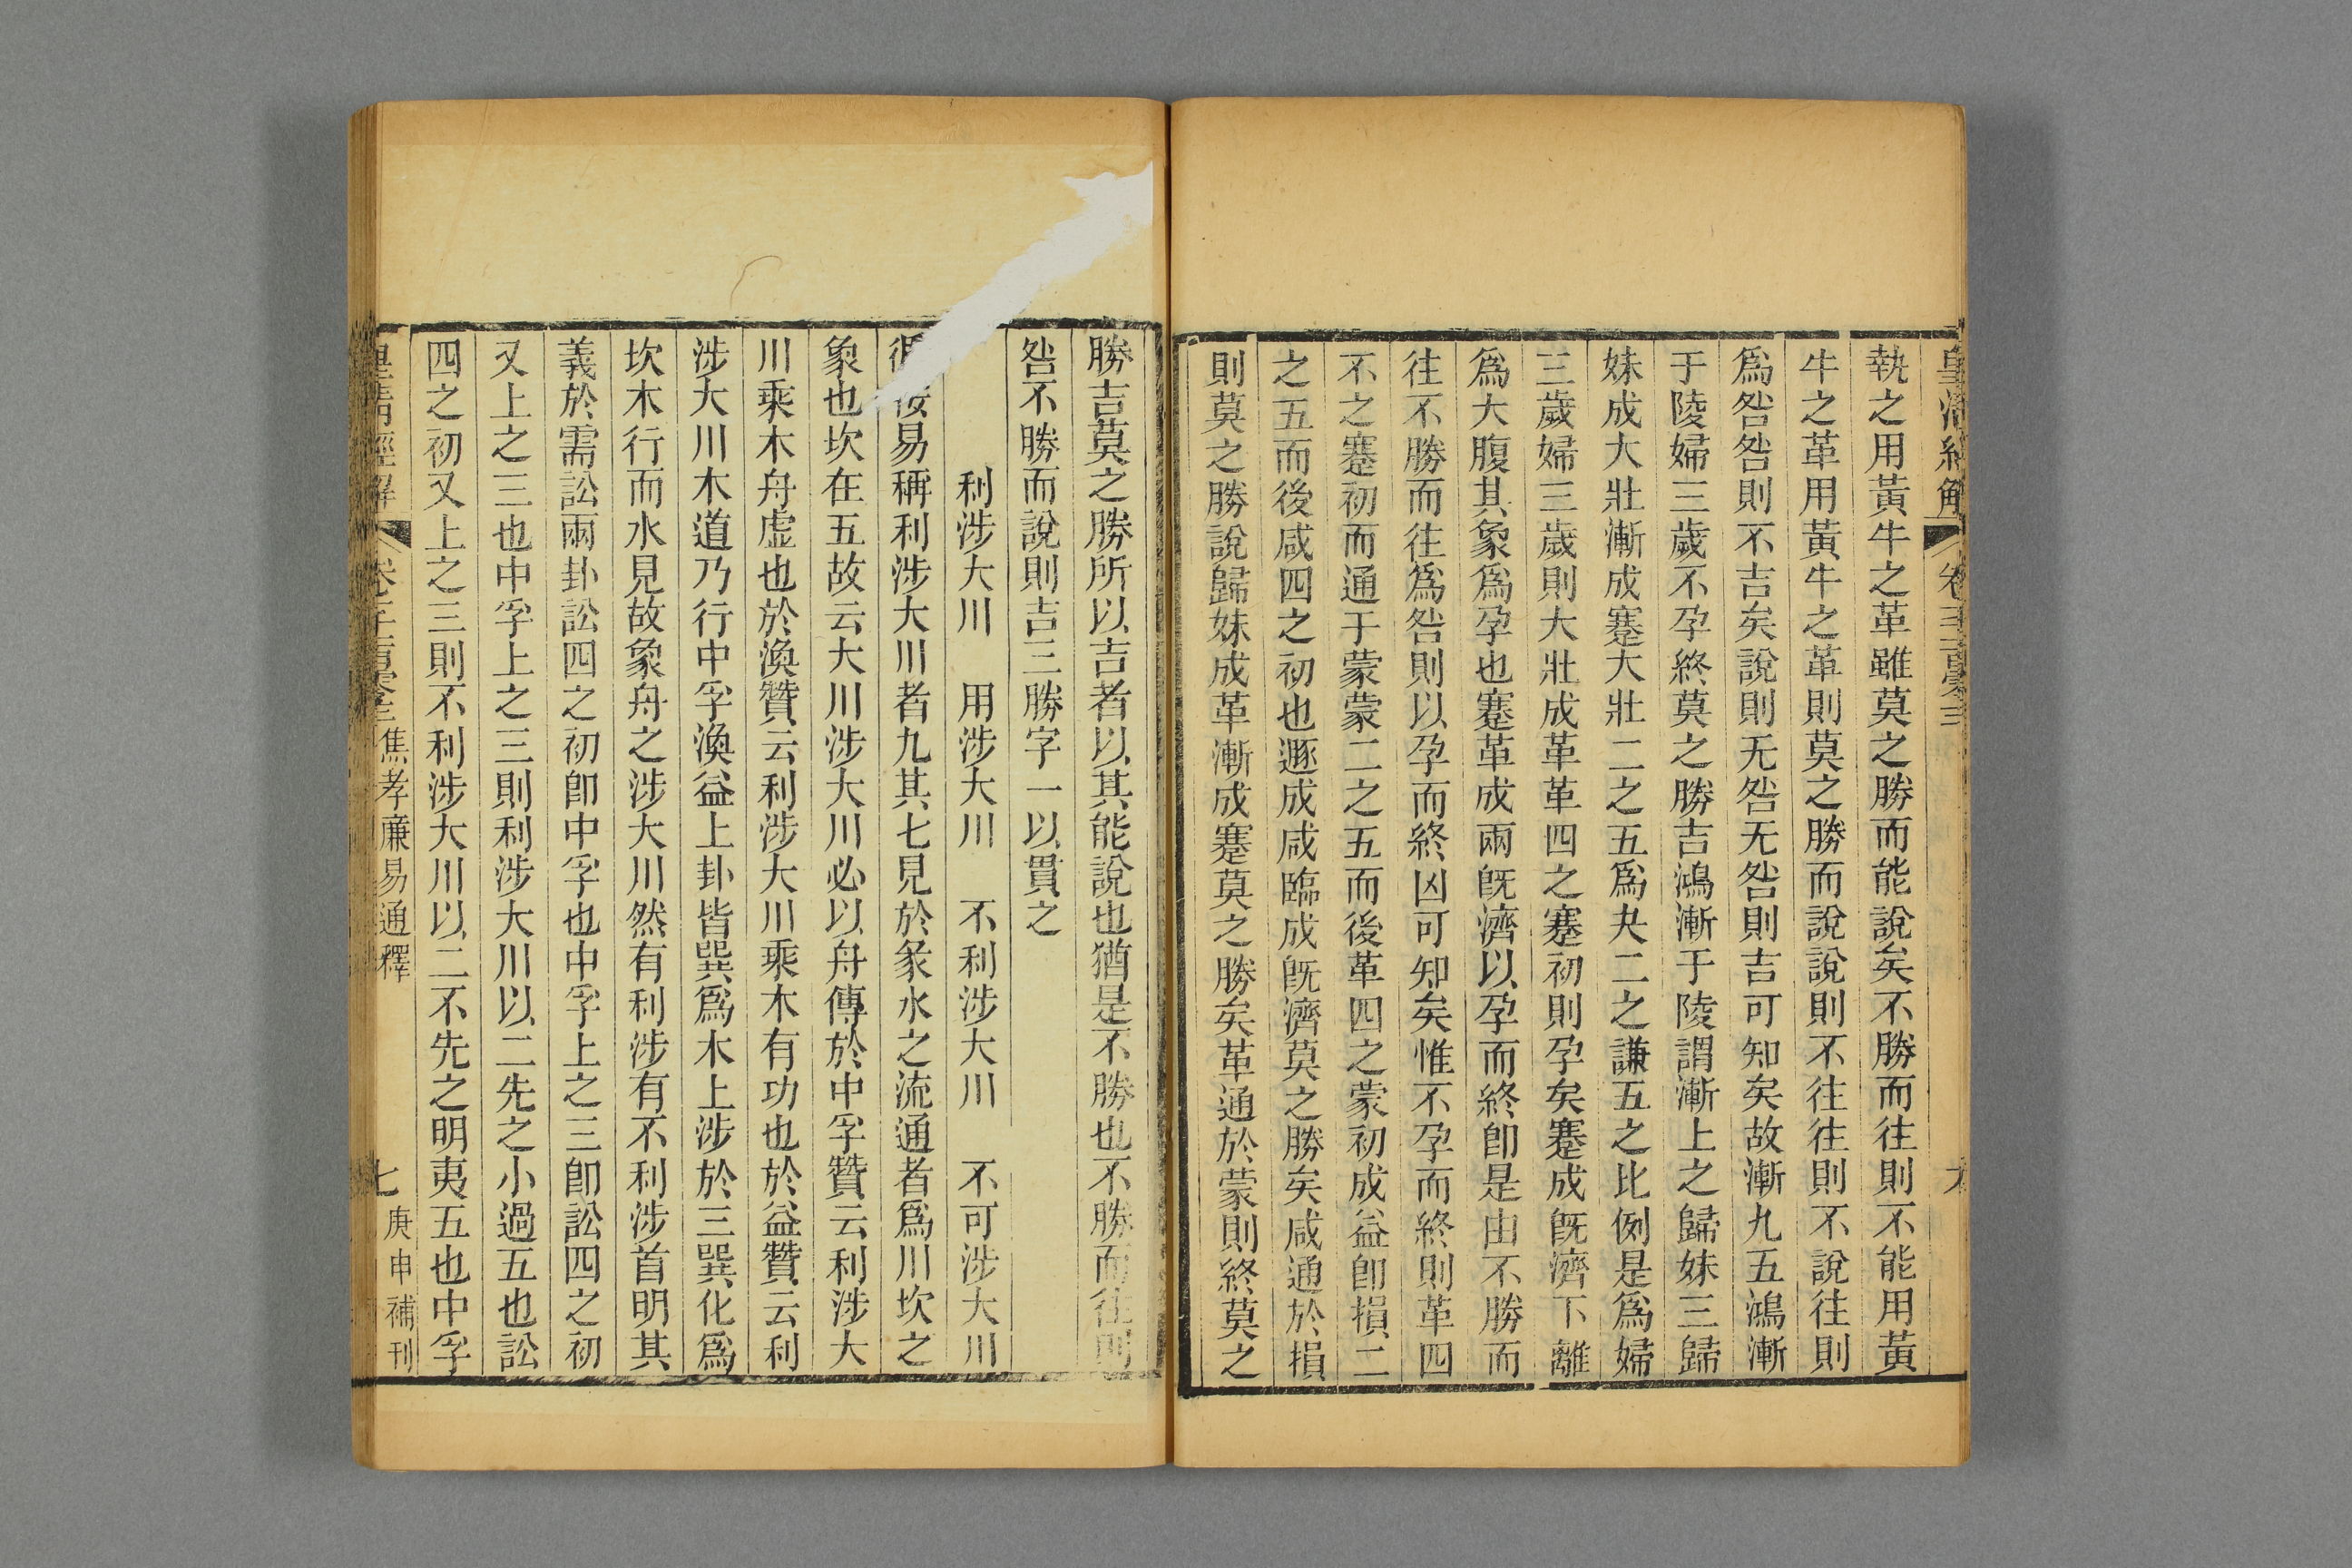 皇清經解 卷
執之用黃牛之革雖莫之勝而能說矣不勝而往則不能用黃
牛之革用黃牛之革則莫之勝而說說則不往往則不說往則
爲咎咎則不吉矣說則无咎无咎則吉可知矣故漸九五鴻漸
于陵婦三歲不孕終莫之勝吉鴻漸于陵謂漸上之歸妹三歸
妹成大壯漸成蹇大壯二之五爲夬二之謙五之比例是爲婦
三歲婦三歲則大壯成革革四之蹇初則孕矣蹇成旣濟下離
爲大腹其象爲孕也蹇革成兩旣濟以孕而終卽是由不勝而
往不勝而往爲咎則以孕而終凶可知矣惟不孕而終則革四
不之蹇初而通于蒙蒙二之五而後革四之蒙初成益卽損二
之五而後咸四之初也遯成咸臨成旣濟莫之勝矣咸通於損
則莫之勝說歸妹成革漸成蹇莫之勝矣革通於蒙則終莫之
勝吉莫之勝所以吉者以其能說也猶是不勝也不勝而往則
咎不勝而說則吉三勝字一以貫之
利涉大川 用涉大川 不利涉大川 不可涉大川
易稱利涉大川者九其七見於彖水之流通者爲川坎之
象也坎在五故云大川涉大川必以舟傳於中孚贊云利涉大
川乘木舟虛也於渙贊云利涉大川乘木有功也於益贊云利
涉大川木道乃行中孚渙益上卦皆巽爲木上涉於三巽化爲
坎木行而水見故象舟之涉大川然有利涉有不利涉首明其
義於需訟兩卦訟四之初卽中孚也中孚上之三卽訟四之初
又上之三也中孚上之三則利涉大川以二先之小過五也訟
四之初又上之三則不利涉大川以二不先之明夷五也中孚
皇清經解 卷 焦孝廉易通釋 七 庚申補刊